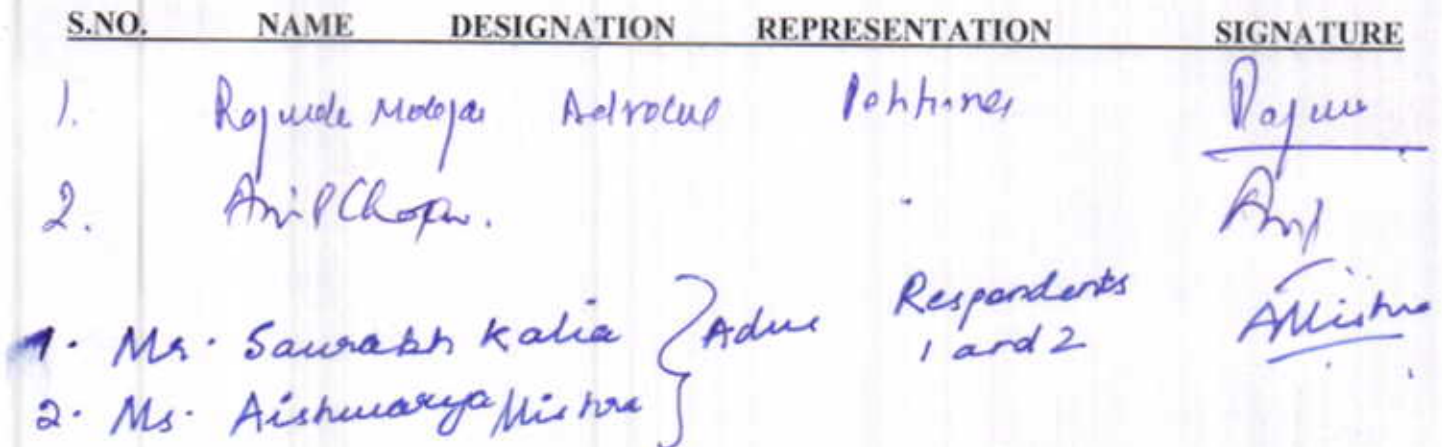 S.NO. NAME DESIGNATION REPRESENTATION SIGNATURE
1. Advocate Petitioner
2. Anil Chopra. "  Anil
1. Mr. Saurabh Kalia } Advs Respondents 1 and 2 AMishra
2. Ms. Aishwarya Mishra